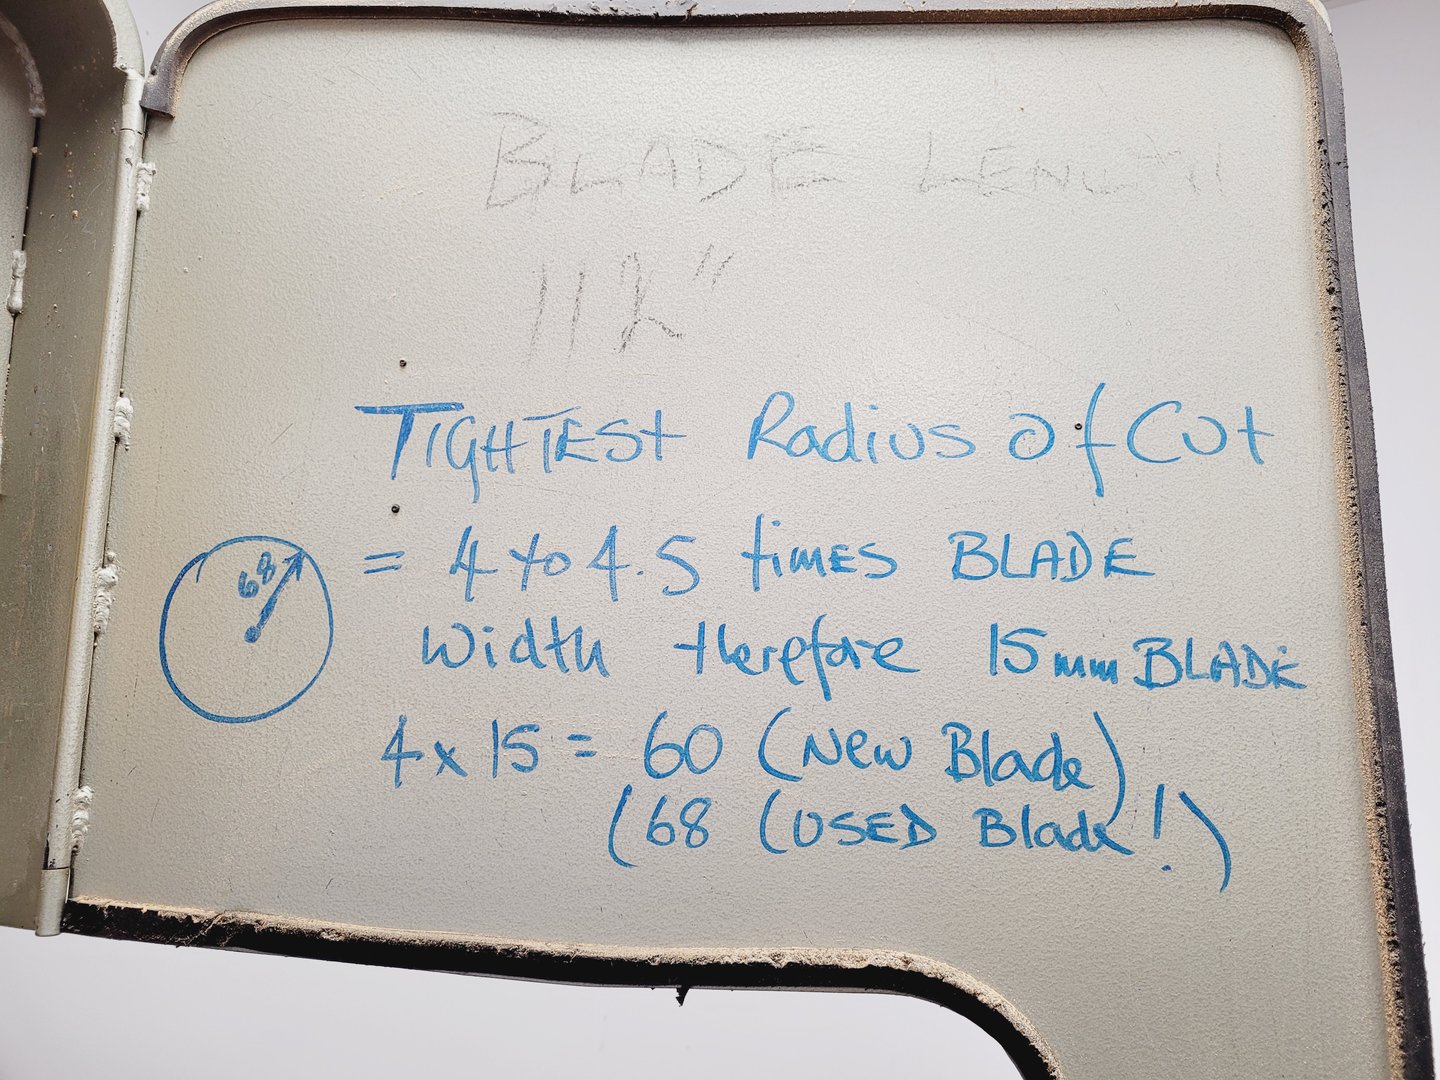 BLADE LENGTH
112"
TIGHTEST Radius of Cut
68
= 4 to 4.5 times BLADE
width therefore 15mm BLADE
4 x 15 = 60 (New Blade)
(68 (USED Blade!)